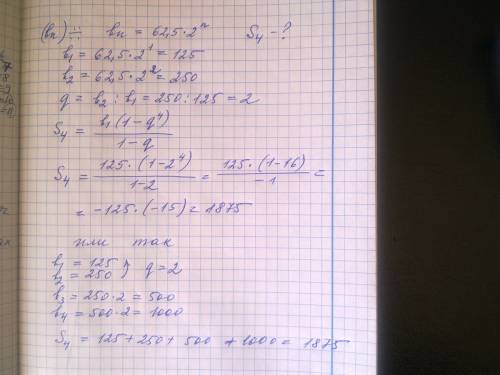 (bn) ∺ bn = 62,5·2ⁿ S₄ - ?
b₁ = 62,5·2¹ = 125
b₂ = 62,5·2² = 250
q = b₂ : b₁ = 250 : 125 = 2
S₄ = b₁(1-q⁴) / 1-q
S₄ = 125·(1-2⁴) / 1-2 = 125·(1-16) / -1 =
= -125·(-15) = 1875
или так
b₁ = 125
b₂ = 250 } q = 2
b₃ = 250·2 = 500
b₄ = 500·2 = 1000
S₄ = 125 + 250 + 500 + 1000 = 1875